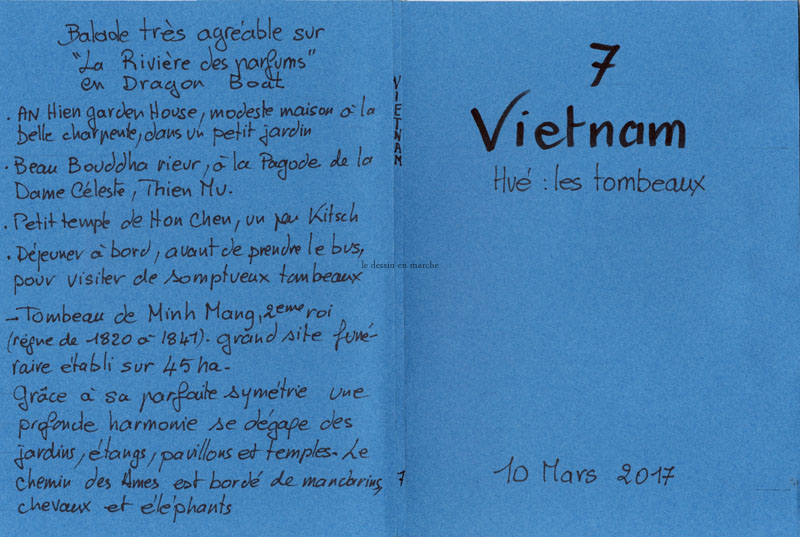 Balade très agréable sur
"La Rivière des parfums"
en Dragon Boat
. AN Hien garden House, modeste maison à la
belle charpente, dans un petit jardin
. Beau Bouddha rieur, à la Pagode de la
Dame Céleste, Thien Mu.
. Petit temple de Hon Chen, un peu Kitsch
. Déjeuner à bord, avant de prendre le bus,
pour visiter de somptueux tombeaux
- Tombeau de Minh Mang, 2eme roi
(règne de 1820 à 1841). grand site funé-
raire établi sur 45 ha -
Grâce à sa parfaite symétrie une
profonde harmonie se dégage des
jardins, étangs, pavillons et temples. Le
chemin des Ames est bordé de mandarins,
chevaux et éléphants
VIETNAM
7
le dessin en marche
7
Vietnam
Hué : les tombeaux
10 Mars 2017